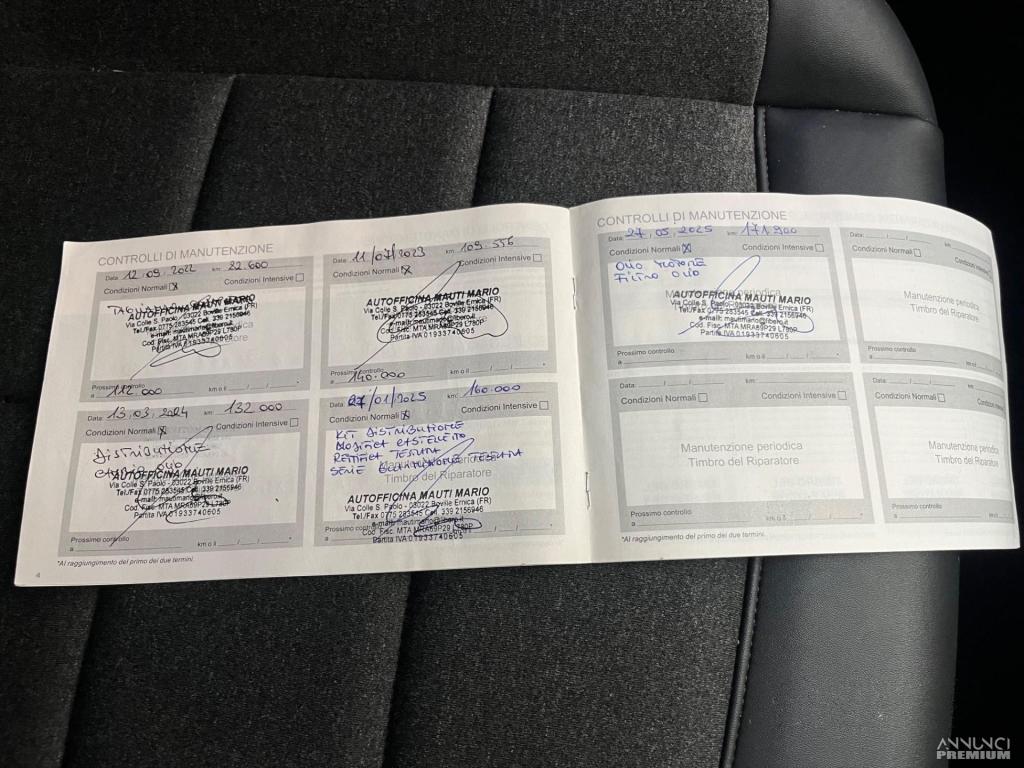 CONTROLLI DI MANUTENZIONE
Data 12.09.2022 km: 22.600
Condizioni Normali Condizioni Intensive
AUTOFFICINA MAUTI MARIO
Via Colle S. Paolo - 03022 Boville Ernica (FR)
Tel./Fax 0775 283545 Cell. 339 2156946
e-mail: mautimario@libero.it
Cod. Fisc. MTA MRA69P29 L780P
Partita IVA 01933740605
Prossimo controllo
a 112.000 km o il
Data 11/07/2023 km: 109.556
Condizioni Normali Condizioni Intensive
AUTOFFICINA MAUTI MARIO
Via Colle S. Paolo - 03022 Boville Ernica (FR)
Tel./Fax 0775 283545 Cell. 339 2156946
e-mail: mautimario@libero.it
Cod. Fisc. MTA MRA69P29 L780P
Partita IVA 01933740605
Prossimo controllo
a 140.000 km o il
Data 13.03.2024 km: 132000
Condizioni Normali Condizioni Intensive
DISTRIBUZIONE
CAMBIO OLIO
AUTOFFICINA MAUTI MARIO
Via Colle S. Paolo - 03022 Boville Ernica (FR)
Tel./Fax 0775 283545 Cell. 339 2156946
e-mail: mautimario@libero.it
Cod. Fisc. MTA MRA69P29 L780P
Partita IVA 01933740605
Prossimo controllo
a km o il
Data 27/01/2025 km: 160.000
Condizioni Normali Condizioni Intensive
KIT DISTRIBUZIONE
MODIFICA CASTELLETTO
RETTIFICA TESTATA
SERIE GUARNIZIONE TESTATA
Manutenzione periodica
AUTOFFICINA MAUTI MARIO
Via Colle S. Paolo - 03022 Boville Ernica (FR)
Tel./Fax 0775 283545 Cell. 339 2156946
e-mail: mautimario@libero.it
Cod. Fisc. MTA MRA69P29 L780P
Partita IVA 01933740605
Prossimo controllo
a km o il
*Al raggiungimento del primo dei due termini.
4
CONTROLLI DI MANUTENZIONE
Data: 27.05.2025 km: 171900
Condizioni Normali Condizioni Intensive
OLIO MOTORE
FILTRO OLIO
AUTOFFICINA MAUTI MARIO
Via Colle S. Paolo - 03022 Boville Ernica (FR)
Tel./Fax 0775 283545 Cell. 339 2156946
e-mail: mautimario@libero.it
Cod. Fisc. MTA MRA69P29 L780P
Partita IVA 01933740605
Prossimo controllo
a km o il
Data: km:
Condizioni Normali Condizioni
Manutenzione periodica
Timbro del Riparatore
Prossimo controllo
a km o il
Data: km:
Condizioni Normali Condizioni Intensive
Manutenzione periodica
Timbro del Riparatore
Prossimo controllo
a km o il
Data: km:
Condizioni Normali Condizioni Intensive
Manutenzione periodica
Timbro del Riparatore
Prossimo controllo
a km o il
*Al raggiungimento del primo dei due termini.
ANNUNCI
PREMIUM